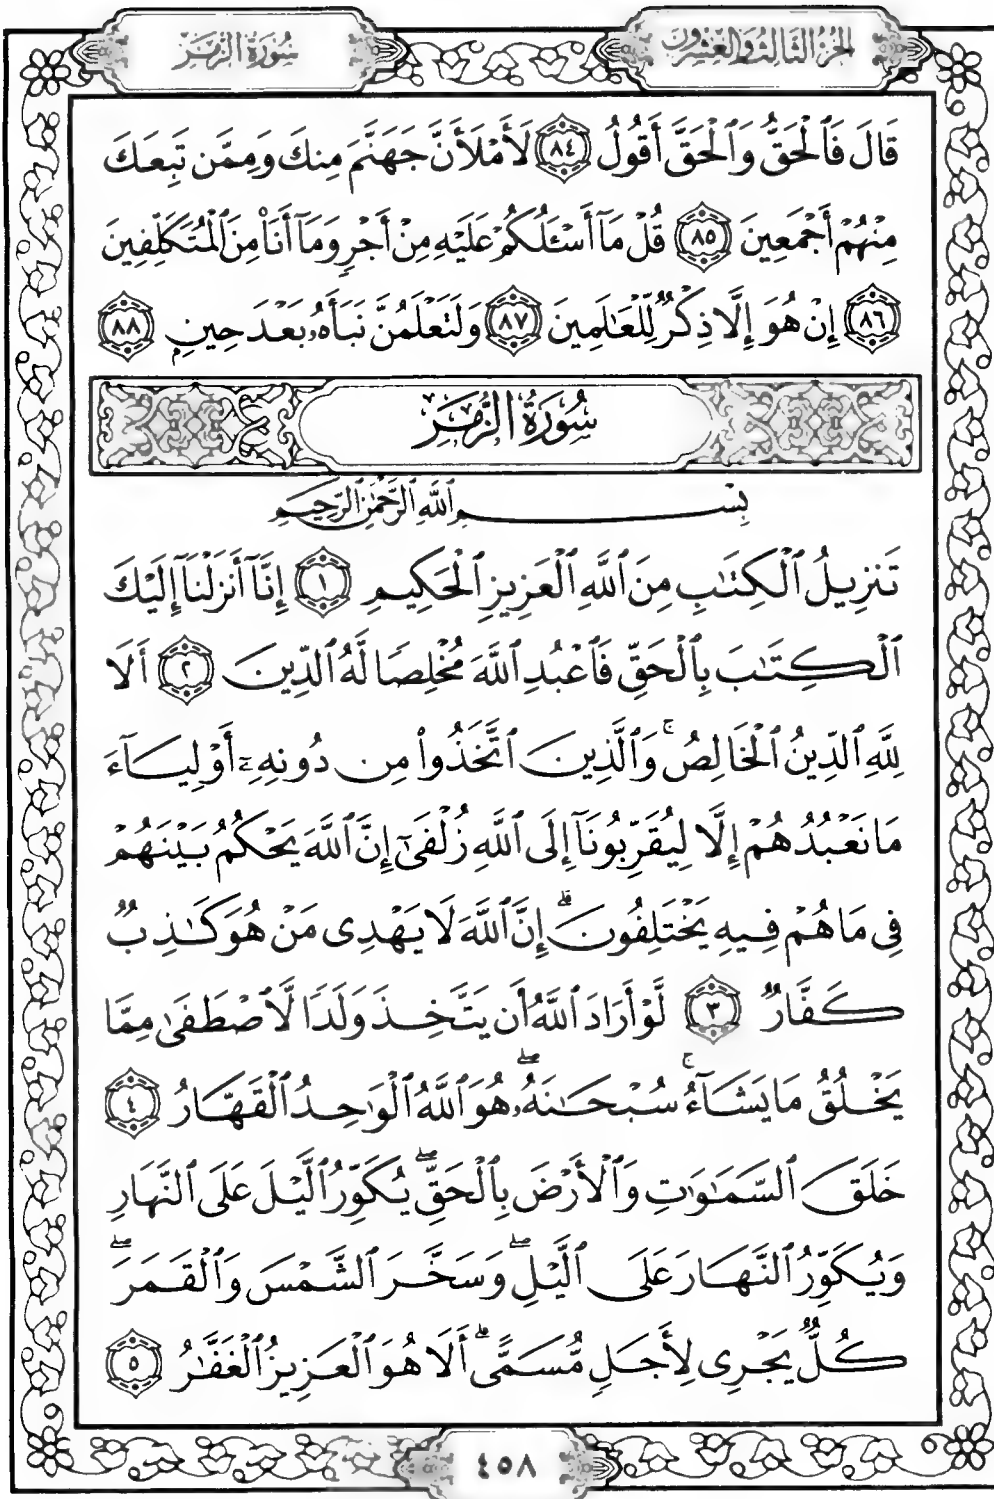 الجزء الثالث والعشرون
سورة الزمر
قَالَ فَٱلْحَقُّ وَٱلْحَقَّ أَقُولُ ٨٤ لَأَمْلَأَنَّ جَهَنَّمَ مِنكَ وَمِمَّن تَبِعَكَ
مِنْهُمْ أَجْمَعِينَ ٨٥ قُلْ مَآ أَسْـَٔلُكُمْ عَلَيْهِ مِنْ أَجْرٍ وَمَآ أَنَا۠ مِنَ ٱلْمُتَكَلِّفِينَ
٨٦ إِنْ هُوَ إِلَّا ذِكْرٌ لِّلْعَـٰلَمِينَ ٨٧ وَلَتَعْلَمُنَّ نَبَأَهُۥ بَعْدَ حِينٍۭ ٨٨
سُورَةُ الزُّمَرِ
بِسْمِ ٱللَّهِ ٱلرَّحْمَـٰنِ ٱلرَّحِيمِ
تَنزِيلُ ٱلْكِتَـٰبِ مِنَ ٱللَّهِ ٱلْعَزِيزِ ٱلْحَكِيمِ ١ إِنَّآ أَنزَلْنَآ إِلَيْكَ
ٱلْكِتَـٰبَ بِٱلْحَقِّ فَٱعْبُدِ ٱللَّهَ مُخْلِصًا لَّهُ ٱلدِّينَ ٢ أَلَا
لِلَّهِ ٱلدِّينُ ٱلْخَالِصُ ۚ وَٱلَّذِينَ ٱتَّخَذُوا۟ مِن دُونِهِۦٓ أَوْلِيَآءَ
مَا نَعْبُدُهُمْ إِلَّا لِيُقَرِّبُونَآ إِلَى ٱللَّهِ زُلْفَىٰٓ إِنَّ ٱللَّهَ يَحْكُمُ بَيْنَهُمْ
فِى مَا هُمْ فِيهِ يَخْتَلِفُونَ ۗ إِنَّ ٱللَّهَ لَا يَهْدِى مَنْ هُوَ كَـٰذِبٌ
كَفَّارٌ ٣ لَّوْ أَرَادَ ٱللَّهُ أَن يَتَّخِذَ وَلَدًا لَّٱصْطَفَىٰ مِمَّا
يَخْلُقُ مَا يَشَآءُ ۚ سُبْحَـٰنَهُۥ ۖ هُوَ ٱللَّهُ ٱلْوَٰحِدُ ٱلْقَهَّارُ ٤
خَلَقَ ٱلسَّمَـٰوَٰتِ وَٱلْأَرْضَ بِٱلْحَقِّ ۖ يُكَوِّرُ ٱلَّيْلَ عَلَى ٱلنَّهَارِ
وَيُكَوِّرُ ٱلنَّهَارَ عَلَى ٱلَّيْلِ ۖ وَسَخَّرَ ٱلشَّمْسَ وَٱلْقَمَرَ ۖ
كُلٌّ يَجْرِى لِأَجَلٍ مُّسَمًّى ۗ أَلَا هُوَ ٱلْعَزِيزُ ٱلْغَفَّـٰرُ ٥
٤٥٨